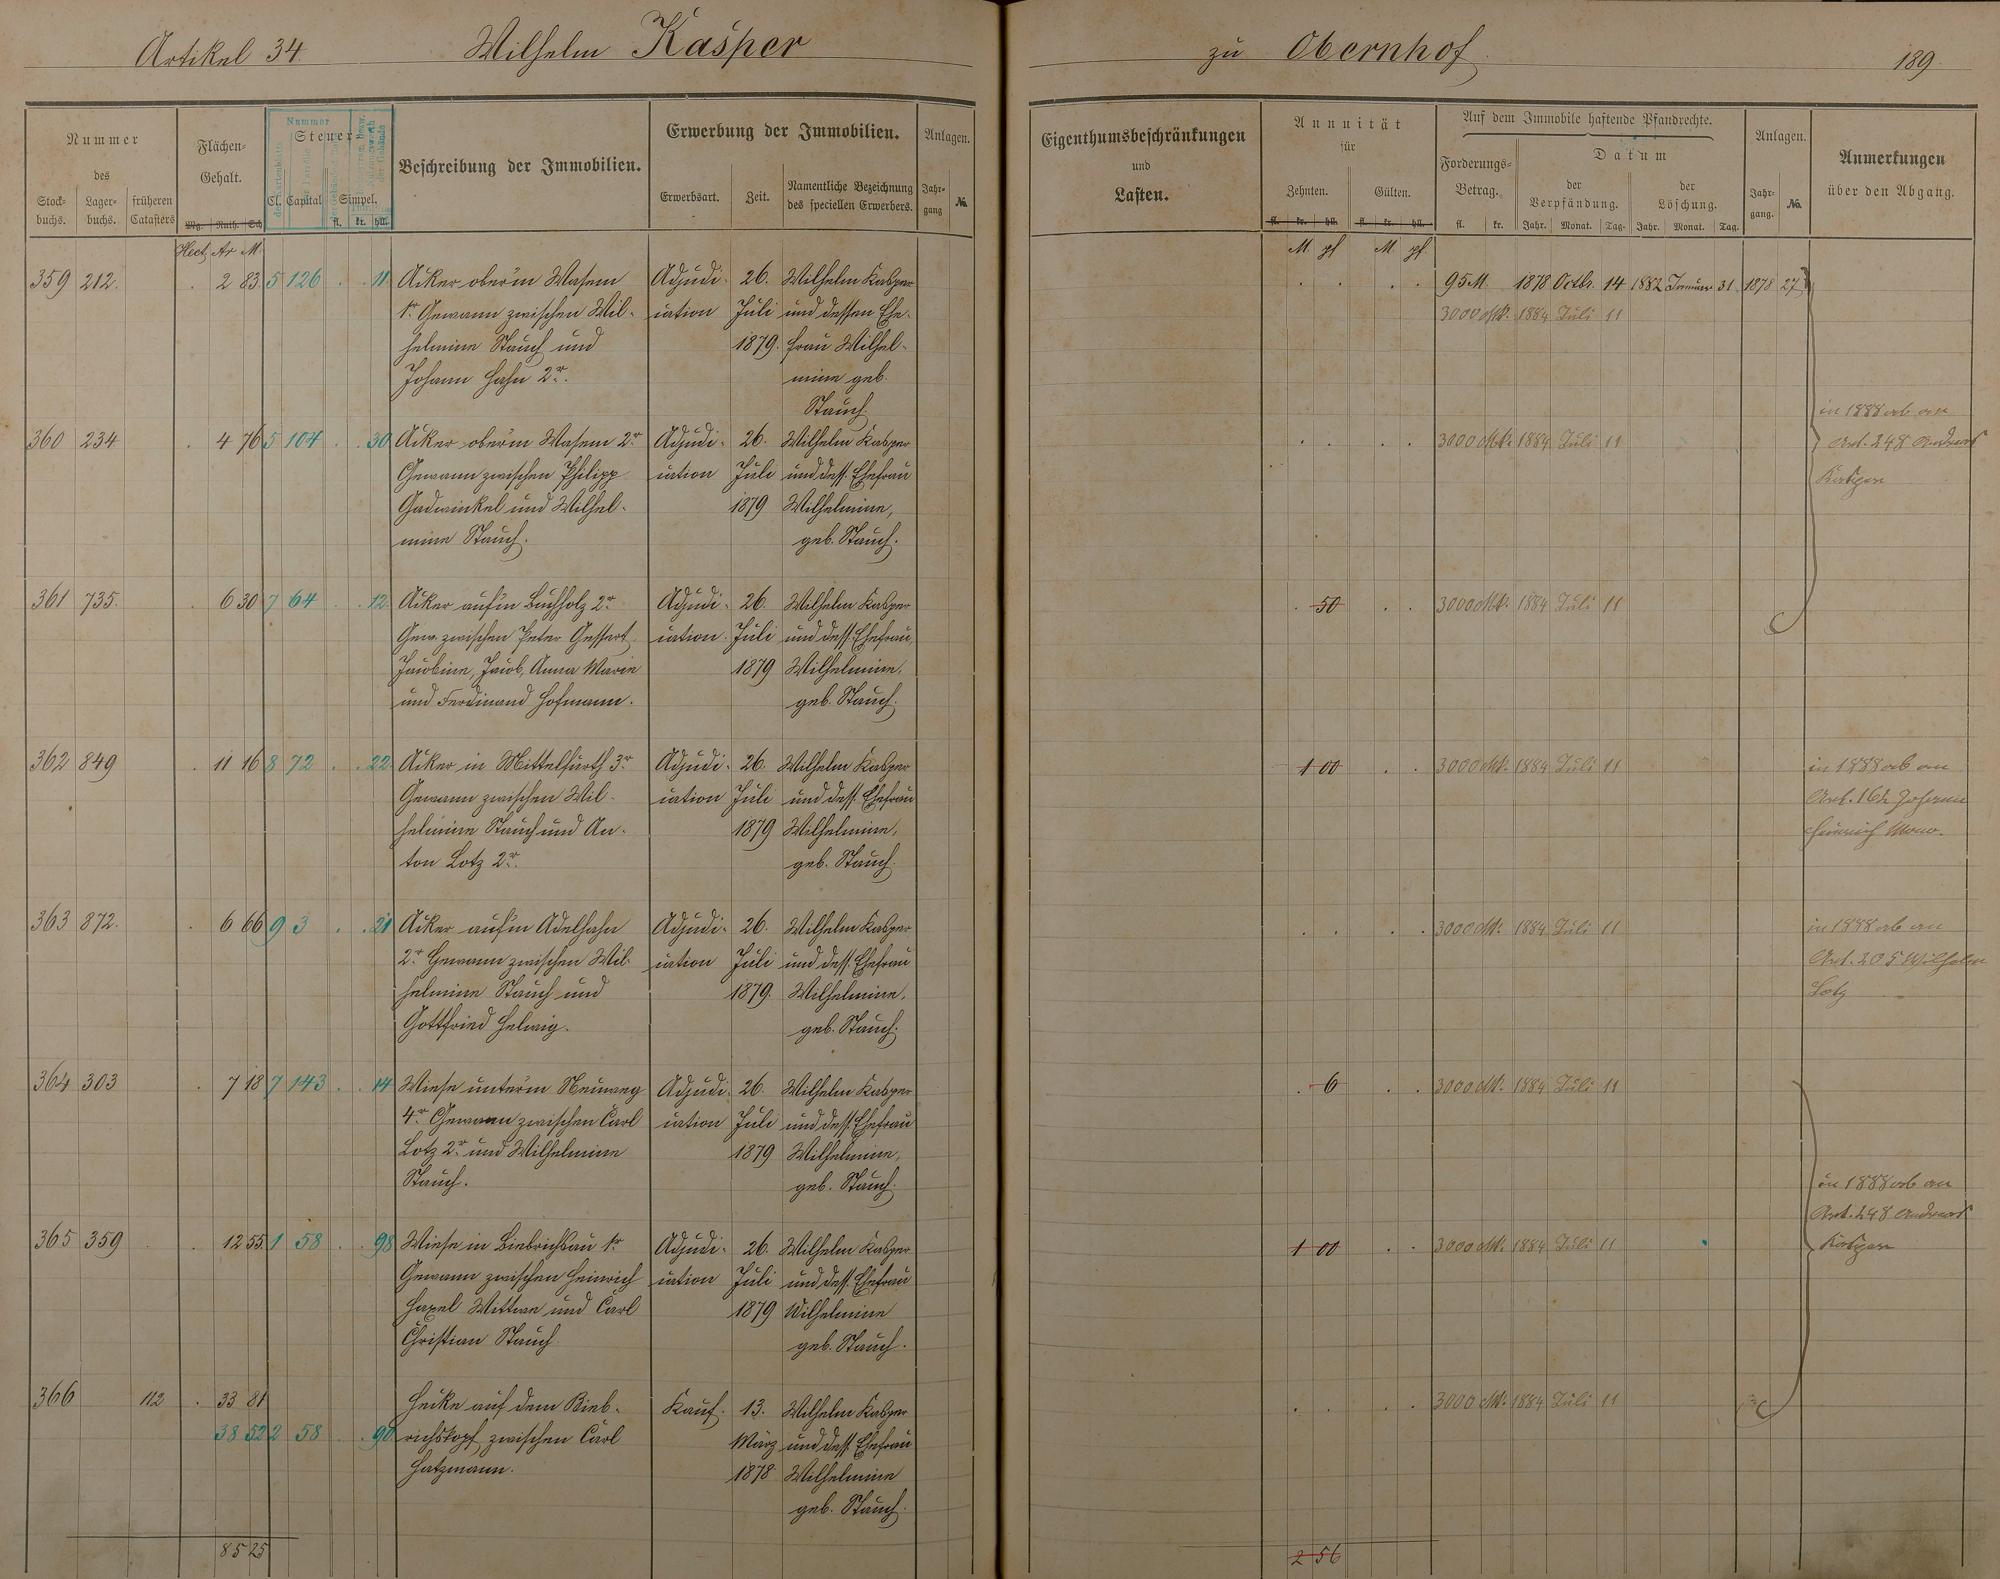 Artikel 34. Wilhelm Kasper zu Obernhof. 189.
Nummer des
Stock-buchs. Lager-buchs. früheren Catasters
Flächen-Gehalt.
Mg. Ruth. Sch.
Nummer
Steuer-
Cl. Capital Simpel.
fl. kr. hll.
Beschreibung der Immobilien.
Erwerbung der Immobilien.
Erwerbsart. Zeit. Namentliche Bezeichnung des speciellen Erwerbers.
Anlagen.
Jahr-gang No.
Eigenthumsbeschränkungen
und
Lasten.
Annuität
für
Zehnten. Gülten.
fl. kr. hll. fl. kr. hll.
Auf dem Immobile haftende Pfandrechte.
Forderungs-Betrag.
fl. kr.
Datum
der Verpfändung. der Löschung.
Jahr. Monat. Tag. Jahr. Monat. Tag.
Anlagen.
Jahr-gang. No.
Anmerkungen
über den Abgang.
Hect. Ar M.
M. pf M. pf.
359 212. 2 83 5 126 11 Acker ober'm Wasem Adjudi- 26. Wilhelm Kasper 95 M. 1878 Octbr. 14 1882 Januar 31 1878 27
1r. Gewann zwischen Wil- cation Juli und dessen Ehe- 3000 Mk. 1884 Juli 11
helmine Stauch und 1879. frau Wilhel-
Johann Hahn 2r. mine geb.
Stauch.
in 1888 ab an
360 234 4 76 5 104 30 Acker ober'm Wasem 2r Adjudi- 26. Wilhelm Kasper 3000 Mk. 1884 Juli 11 Art. 248 Andreas
Gewann zwischen Philipp cation Juli und dess. Ehefrau Kasper
Gadwinkel und Wilhel- 1879 Wilhelmine,
mine Stauch. geb. Stauch.
361 735. 6 30 7 64 12 Acker auf'm Buchholz 2r Adjudi- 26. Wilhelm Kasper 50 3000 Mk. 1884 Juli 11
Gew. zwischen Peter Gessert cation. Juli und dess. Ehefrau,
Jacobine, Jacob, Anna Marie 1879 Wilhelmine,
und Ferdinand Hofmann. geb. Stauch.
362 849 11 16 8 72 22 Acker in Mittelfurth 3r Adjudi- 26. Wilhelm Kasper 1 00 3000 Mk. 1884 Juli 11 in 1888 ab an
Gewann zwischen Wil- cation Juli und dess. Ehefrau Art. 162 Johann
helmine Stauch und An- 1879 Wilhelmine, Heinrich
ton Lotz 2r. geb. Stauch.
363 872. 6 66 9 3 21 Acker auf'm Adelhahn Adjudi- 26. Wilhelm Kasper 3000 Mk. 1884 Juli 11 in 1888 ab an
2r. Gewann zwischen Wil- cation Juli und dess. Ehefrau Art. 205 Wilhelm
helmine Stauch und 1879. Wilhelmine, Lotz
Gottfried Helwig. geb. Stauch.
364 303 7 18 7 143 14 Wiese unter'm Neuweg Adjudi- 26. Wilhelm Kasper 6 3000 Mk. 1884 Juli 11
4r. Gewann zwischen Carl cation Juli und dess. Ehefrau
Lotz 2r. und Wilhelmine 1879 Wilhelmine,
Stauch. geb. Stauch. in 1888 ab an
Art. 248 Andreas
365 359 12 55 1 58 98 Wiese in Biebrichsau 1r Adjudi- 26. Wilhelm Kasper 1 00 3000 Mk. 1884 Juli 11 Kasper
Gewann zwischen Heinrich cation Juli und dess. Ehefrau
Hapel Wittwe und Carl 1879 Wilhelmine
Christian Stauch. geb. Stauch.
366 112 33 81 Hecke auf dem Bieb- Kauf. 13. Wilhelm Kasper 3000 Mk. 1884 Juli 11
38 52 2 58 90 richskopf zwischen Carl März und dess. Ehefrau
Hatzmann. 1878 Wilhelmine
geb. Stauch.
85 25 2 56